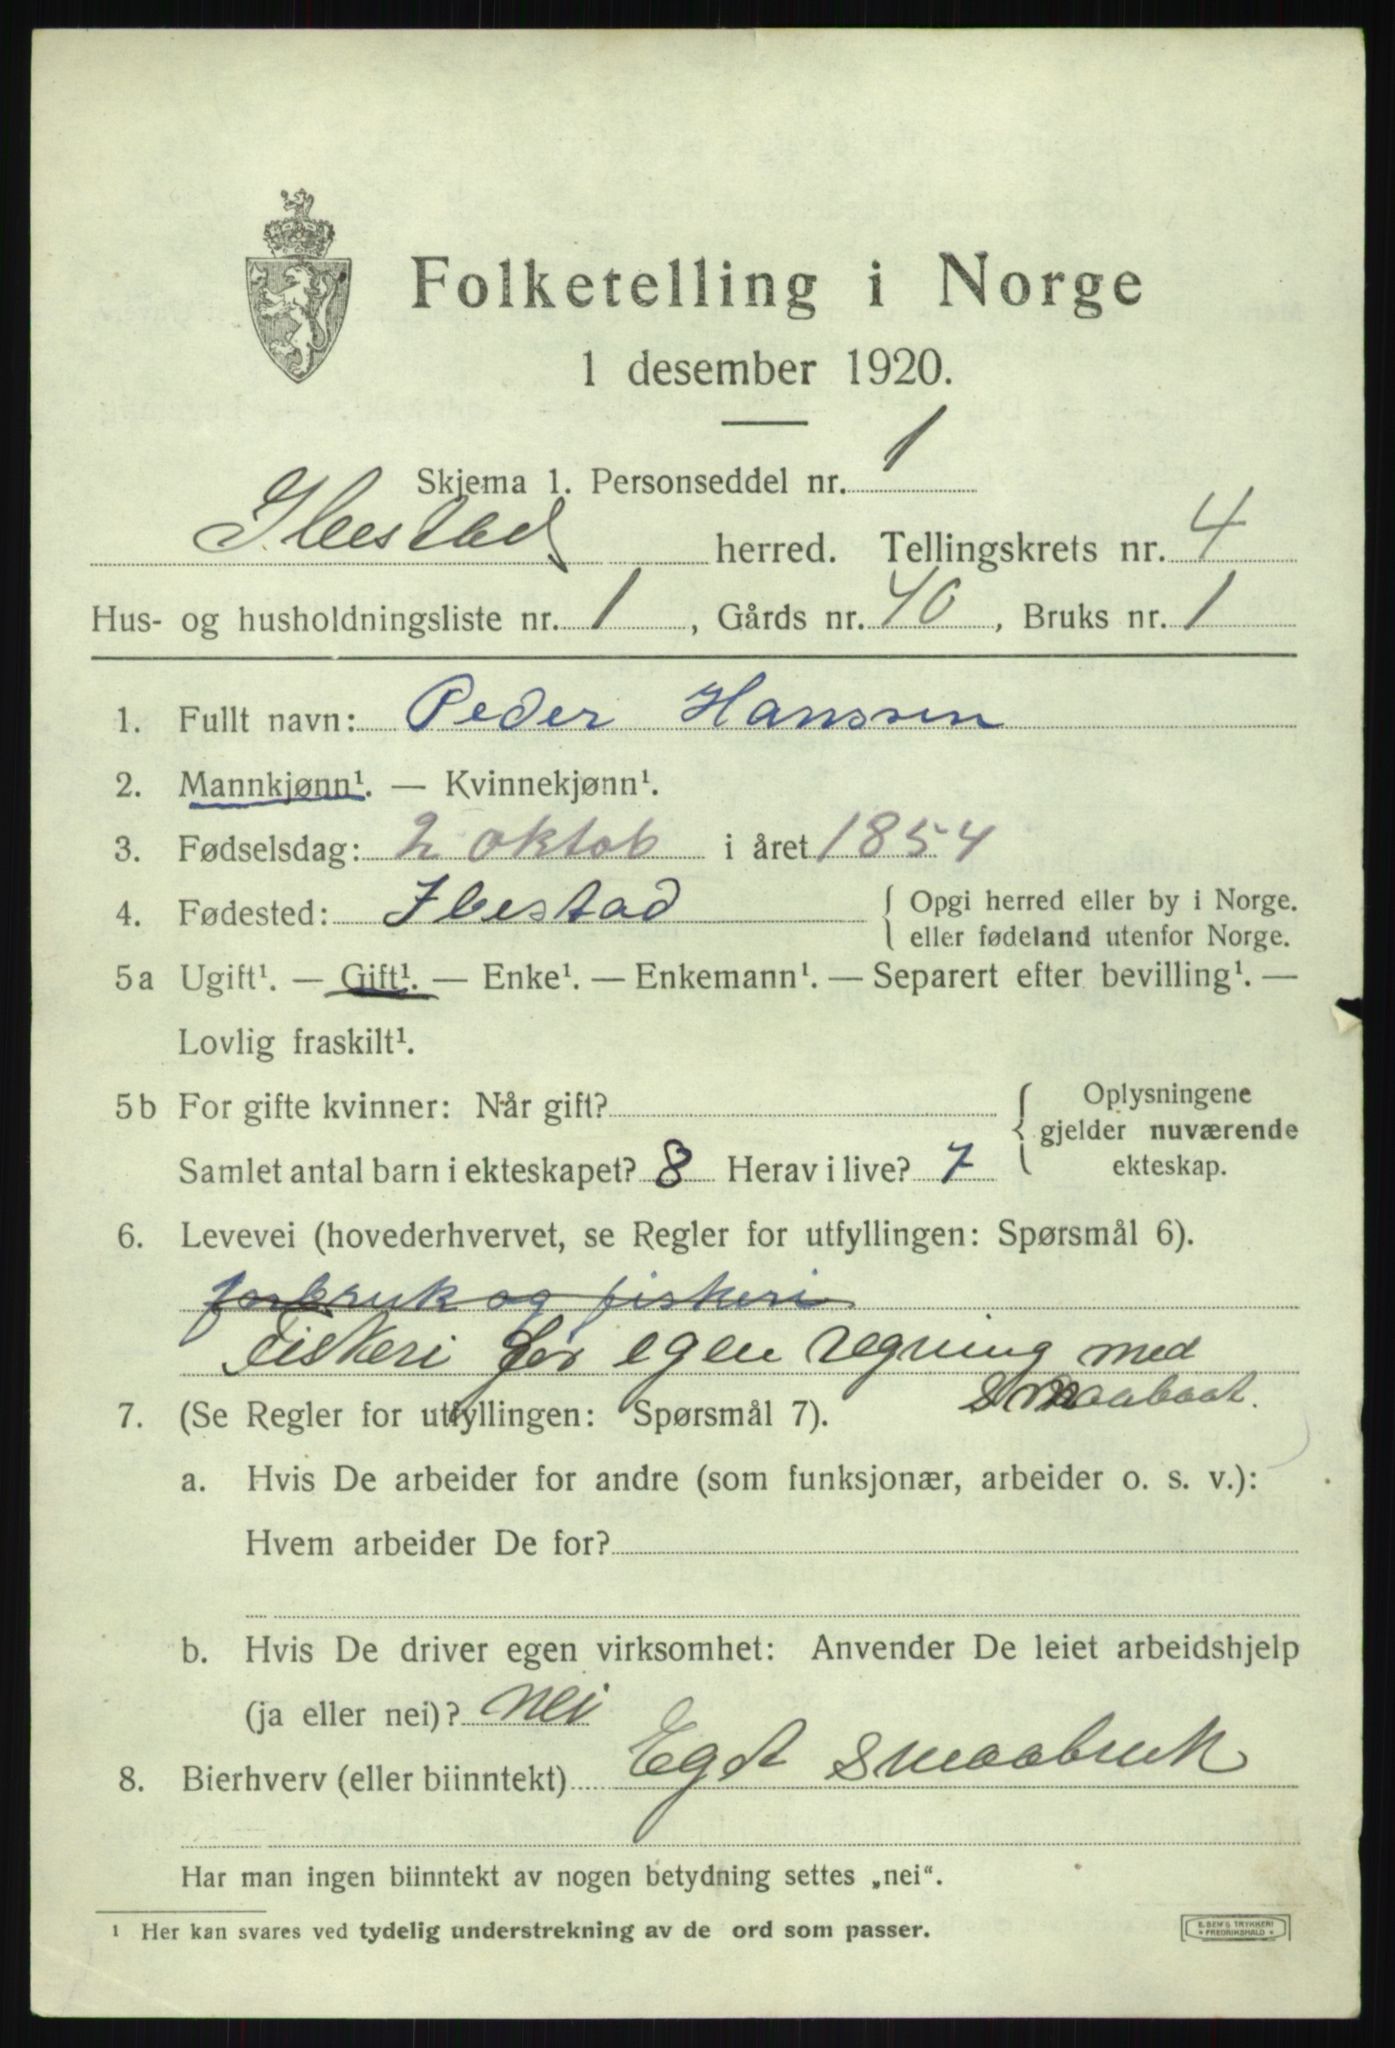 Folketelling i Norge
1 desember 1920.
Skjema 1. Personseddel nr. 1
Ibestad herred. Tellingskrets nr. 4
Hus- og husholdningsliste nr. 1, Gårds nr. 40, Bruks nr. 1
1. Fullt navn: Peder Hanssen
2. Mannkjønn¹. — Kvinnekjønn¹.
3. Fødselsdag: 2 oktob i året 1854
4. Fødested: Ibestad { Opgi herred eller by i Norge.
eller fødeland utenfor Norge.
5a Ugift¹. — Gift¹. — Enke¹. — Enkemann¹. — Separert efter bevilling¹. —
Lovlig fraskilt¹.
5b For gifte kvinner: Når gift? { Oplysningene
gjelder nuværende
Samlet antal barn i ekteskapet? 8 Herav i live? 7 ekteskap.
6. Levevei (hovederhvervet, se Regler for utfyllingen: Spørsmål 6).
jorbruk og fiskeri
Fiskeri for egen regning med
smaabaat.
7. (Se Regler for utfyllingen: Spørsmål 7).
a. Hvis De arbeider for andre (som funksjonær, arbeider o. s. v.):
Hvem arbeider De for?
b. Hvis De driver egen virksomhet: Anvender De leiet arbeidshjelp
(ja eller nei)? nei
8. Bierhverv (eller biinntekt) Eget smaabruk
Har man ingen biinntekt av nogen betydning settes „nei“.
¹ Her kan svares ved tydelig understrekning av de ord som passer.
E. SEM'S TRYKKERI
FREDRIKSHALD